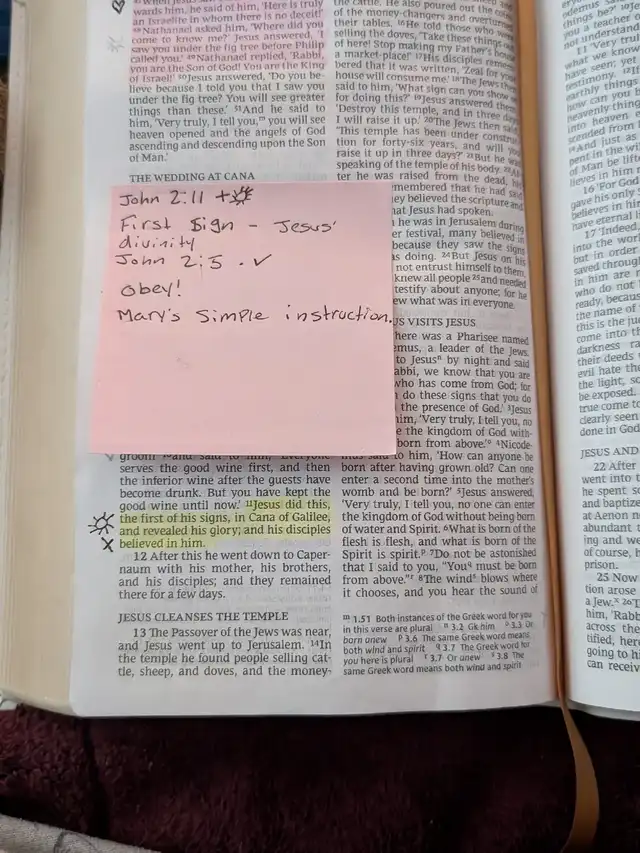 wards him, he said of him, 'Here is truly
an Israelite in whom there is no deceit!'
48 Nathanael asked him, 'Where did you
come to know me?' Jesus answered, 'I
saw you under the fig tree before Philip
called you.' 49 Nathanael replied, 'Rabbi,
you are the Son of God! You are the King
of Israel!' 50 Jesus answered, 'Do you be-
lieve because I told you that I saw you
under the fig tree? You will see greater
things than these.' 51 And he said to
him, 'Very truly, I tell you,m you will see
heaven opened and the angels of God
ascending and descending upon the Son
of Man.'
THE WEDDING AT CANA
John 2:11 +
First Sign - Jesus'
divinity
John 2:5 . ✓
Obey!
Mary's simple instruction.
serves the good wine first, and then
the inferior wine after the guests have
become drunk. But you have kept the
good wine until now.' 11 Jesus did this,
the first of his signs, in Cana of Galilee,
and revealed his glory; and his disciples
believed in him.
12 After this he went down to Caper-
naum with his mother, his brothers,
and his disciples; and they remained
there for a few days.
JESUS CLEANSES THE TEMPLE
13 The Passover of the Jews was near,
and Jesus went up to Jerusalem. 14 In
the temple he found people selling cat-
tle, sheep, and doves, and the money-
the cattle. He also poured out the
of the money-changers and overturned
their tables. 16 He told those who were
selling the doves, 'Take these things out
of here! Stop making my Father's house
a market-place!' 17 His disciples remem-
bered that it was written, 'Zeal for your
house will consume me.' 18 The Jews then
said to him, 'What sign can you show us
for doing this?' 19 Jesus answered them,
'Destroy this temple, and in three days
I will raise it up.' 20 The Jews then said,
'This temple has been under construc-
tion for forty-six years, and will you
raise it up in three days?' 21 But he was
speaking of the temple of his body. 22 Af-
ter he was raised from the dead, his
remembered that he had said
ey believed the scripture and
hat Jesus had spoken.
he was in Jerusalem during
er festival, many believed in
because they saw the signs
s doing. 24 But Jesus on his
not entrust himself to them,
knew all people 25 and needed
testify about anyone; for he
ew what was in everyone.
US VISITS JESUS
here was a Pharisee named
emus, a leader of the Jews.
to Jesus by night and said
abbi, we know that you are
who has come from God; for
do these signs that you do
the presence of God.' 3 Jesus
him, 'Very truly, I tell you, no
e the kingdom of God with-
born from above.' 4 Nicode-
mus said to him, 'How can anyone be
born after having grown old? Can one
enter a second time into the mother's
womb and be born?' 5 Jesus answered,
'Very truly, I tell you, no one can enter
the kingdom of God without being born
of water and Spirit. 6 What is born of the
flesh is flesh, and what is born of the
Spirit is spirit.p 7 Do not be astonished
that I said to you, "You q must be born
from above."r 8 The winds blows where
it chooses, and you hear the sound of
m 1.51 Both instances of the Greek word for you
in this verse are plural n 3.2 Gk him o 3.3 Or
born anew p 3.6 The same Greek word means
both wind and spirit q 3.7 The Greek word for
you here is plural r 3.7 Or anew s 3.8 The
same Greek word means both wind and spirit
JESUS AND
22 After
went into t
he spent so
and baptize
at Aenon n
abundant
ing and we
of course, h
prison.
25 Now
tion arose
a Jew.
him, 'Rabb
across the
tified, here
going to hi
can receiv